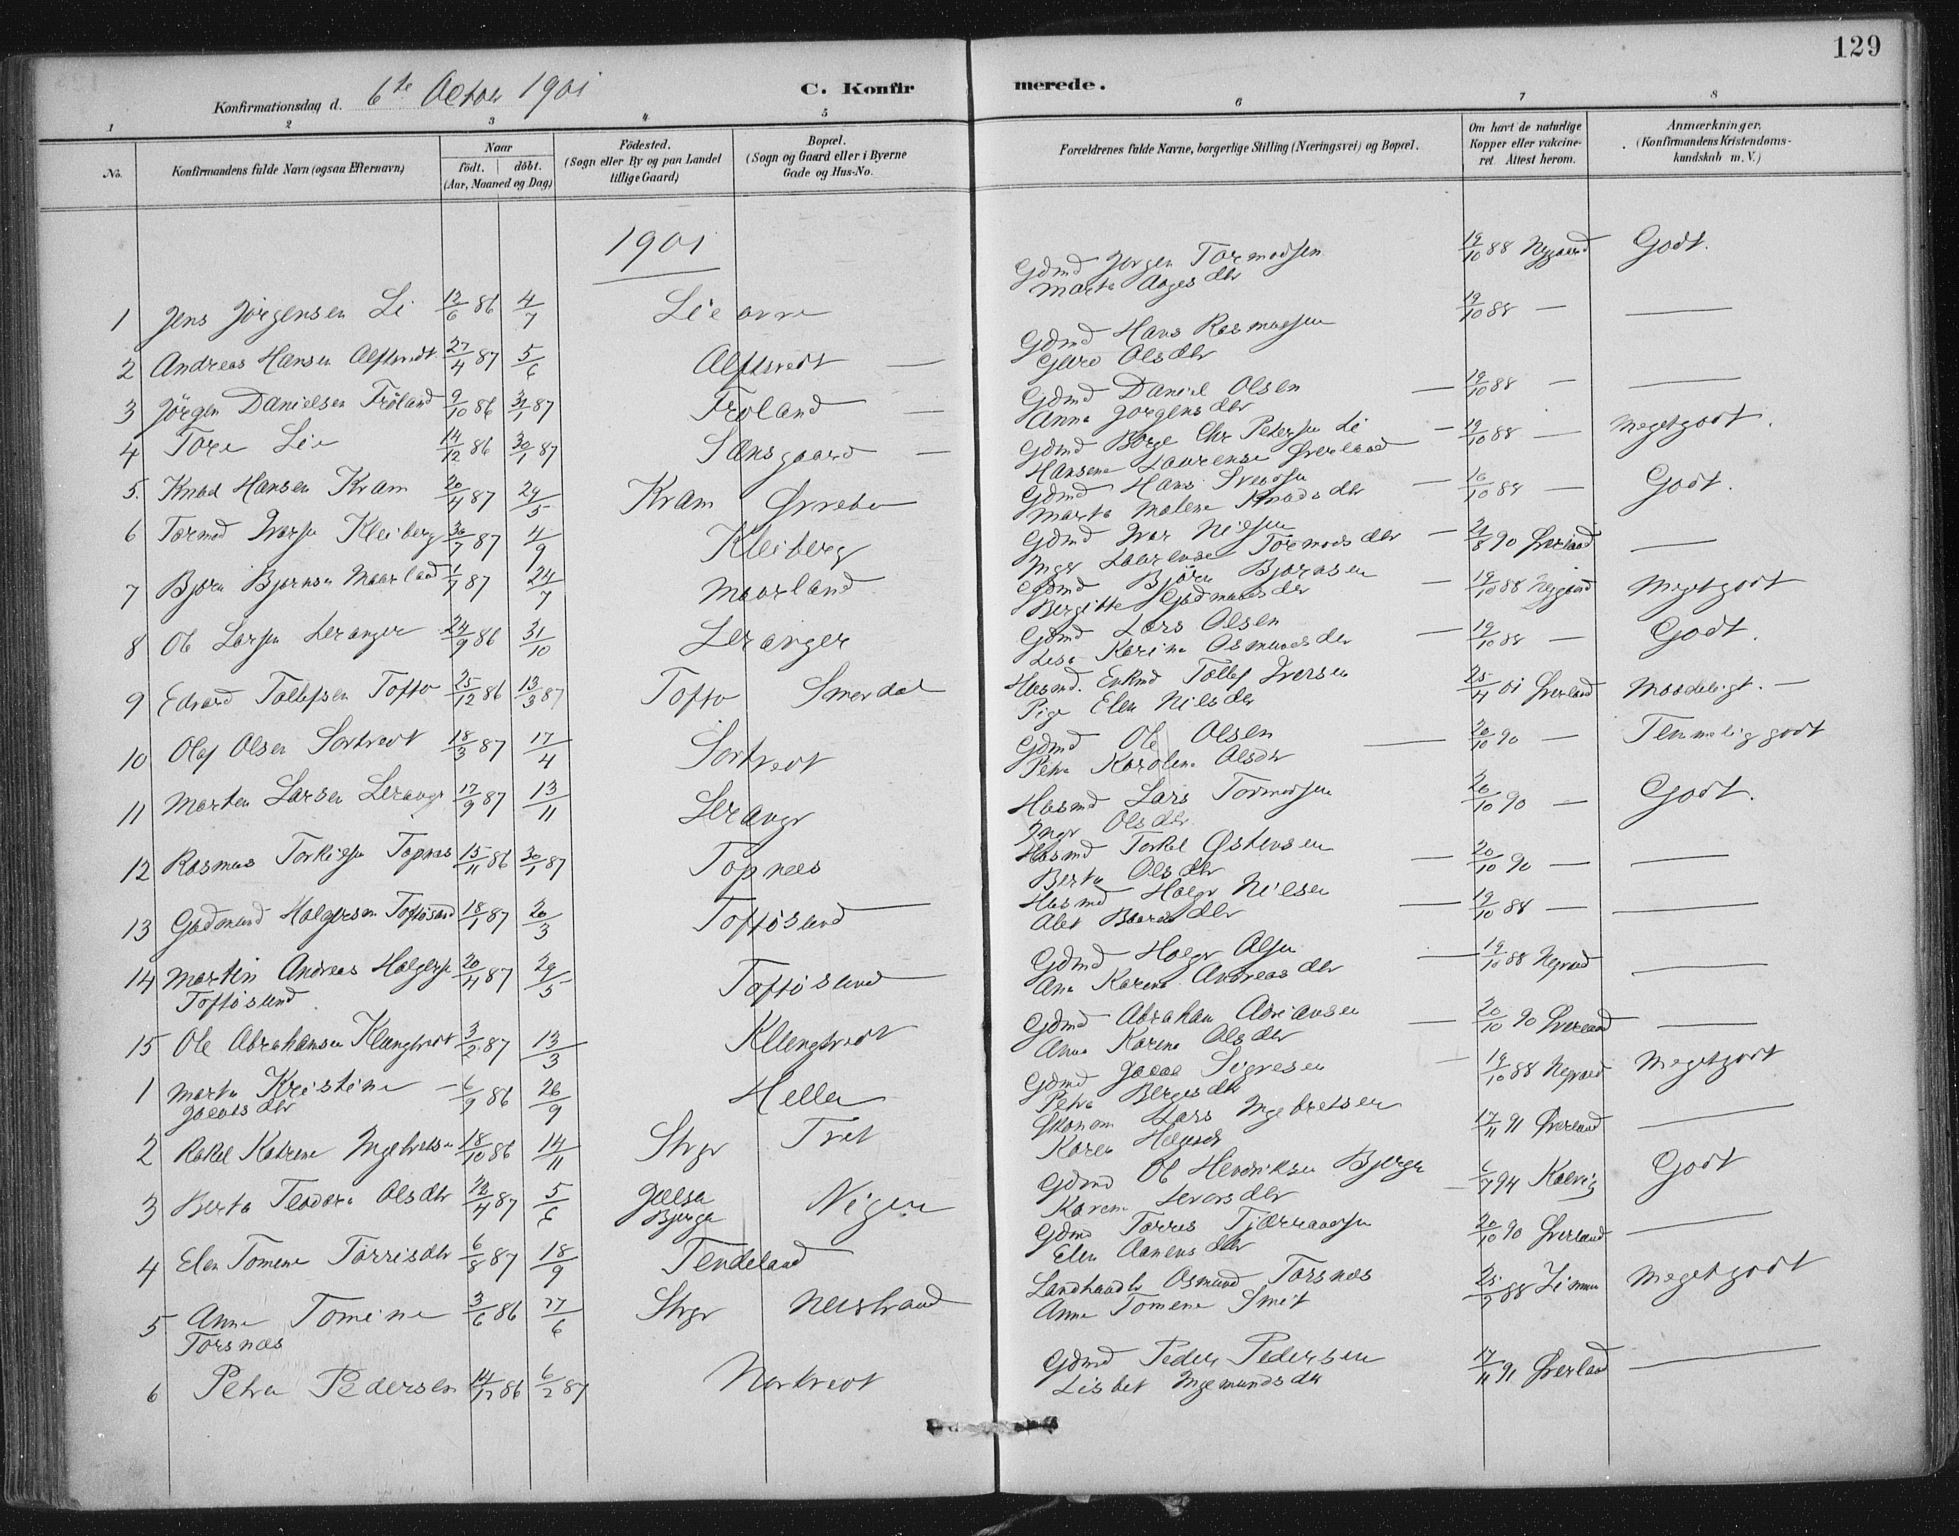 129
Konfirmationsdag d. 6te Octor 1901
C. Konfirmerede.
1 2 3 4 5 6 7 8
No. Konfirmandens fulde Navn (ogsaa Efternavn) Naar födt. döbt. (Aar, Maaned og Dag) Födested. (Sogn eller By og paa Landet tillige Gaard) Bopæl. (Sogn og Gaard eller i Byerne Gade og Hus-No. Forældrenes fulde Navne, borgerlige Stilling (Næringsvei) og Bopæl. Om havt de naturlige Kopper eller vakcineret. Attest herom. Anmærkninger. (Konfirmandens Kristendomskundskab m. V.)
1901
1 Jens Jörgensen Li 12/6 86 4/7 Lie Gdmd Jørgen Tormodsen 19/10 88 Nygaard Godt.
Marta Aagesdtr
2 Andreas Hansen 27/4 87 5/6 Gdmd Hans Rasmussen 19/10 88 —
Olsdtr
3 Jörgen Danielsen Fröland 9/10 86 30/1 87 Fröland — Gdmd Daniel Olsen — 19/10 88 —
Anna Jörgensdtr
4 Tore Lie 14/12 86 30/1 87 Sansgaard — Gdmd Börge Chr Petersen Li — 19/10 88 — Megetgodt.
Hansene Laurense Øverland
5. Knud Hansen Kram 20/4 87 29/5 Kram Ørrebø Gdmd Hans — 10/10 88 — Godt.
Marta Malene Knudsdtr
6 Tormod Ivarsen Kleiberg 30/7 87 4/9 Kleiberg Gdmd Ivar Nilsen — 21/8 90 Øverland —
Inger Laurense Tormodsdtr
7 Bjørn Bjørnsen Maarland 1/7 87 24/7 Maarland Gdmd Bjørn Bjørnsen — 19/10 88 Nygaard Megetgodt
Bergitte Gudmundsdtr
8 Ole Larsen Leranger 24/9 86 31/10 Leranger Gdmd Lars Olsen — 19/10 88 — Godt.
Lisa Karine Osmundsdtr
9 Edvard Tollefsen Toftø 25/12 86 13/3 87 Toftø Smerdal Husmd. Enkmd Tollef Iversen 25/4 01 Øverland Maadeligt. —
Pige Elen Nilsdtr
10 Olaf Olsen Sortvedt 18/3 87 17/4 Sortvedt Gdmd Ole Olsen — 20/10 90 — Temmelig godt
Petra Karoline Olsdtr
11 Morten Larsen Leranger 17/9 87 13/11 Leranger Husmd Lars Tormodsen 20/10 90 — Godt.
Inger Olsdtr.
12 Rasmus Torkelsen Topnes 15/11 86 30/1 87 Topnæs Husmd Torkel Østensen — 20/10 90 — —
Berta Olsdtr
13 Gudmund Holgersen Toftøsund 18/1 87 20/3 Toftøsund — Husmd Holger Nilsen — 19/10 88 — —
Baardsdtr
14 Martin Andreas Holgersen 20/4 87 29/5 Toftøsund Gdmd Holger Olsen — 19/10 88 —
Toftøsund Ane Karine Andreasdtr
15 Ole Abrahamsen Klungtvedt 3/2 87 13/3 Klungtvedt Gdmd Abraham Adriansen — 20/10 90 Øverland —
Anna Karine Olsdtr
1 Marta Kristine — 6/9 86 26/9 Hellen Gdmd Jacob — 19/10 88 Megetgodt
Jacobsdtr Petra Bergesdtr
2 Rakel Katrine Ingebretsen 18/10 86 14/11 Stvgr Lars Ingebretsen 17/11 91 Øverland —
Karen
3 Berta Teodora Olsdtr 12/4 87 5/6 Jælsa Bjerge Nigen Gdmd Ole Hendriksen Bjerge — 6/7 94 Godt
Karen
4 Elen Tomine Torrisdtr 6/8 87 18/9 Tendeland Gdmd Torris 20/10 90 Øverland —
Elen
5 Anne Tomine 3/6 86 27/6 Stvgr Nerstrand Landhandler Osmund Torsnæs Megetgodt
Torsnæs Anne Tomene Smit
6 Petra Pedersen 14/12 86 6/2 87 Nortvedt Gdmd Peder Pedersen 17/11 91 Øverland —
Lisbet Ingemundsdtr